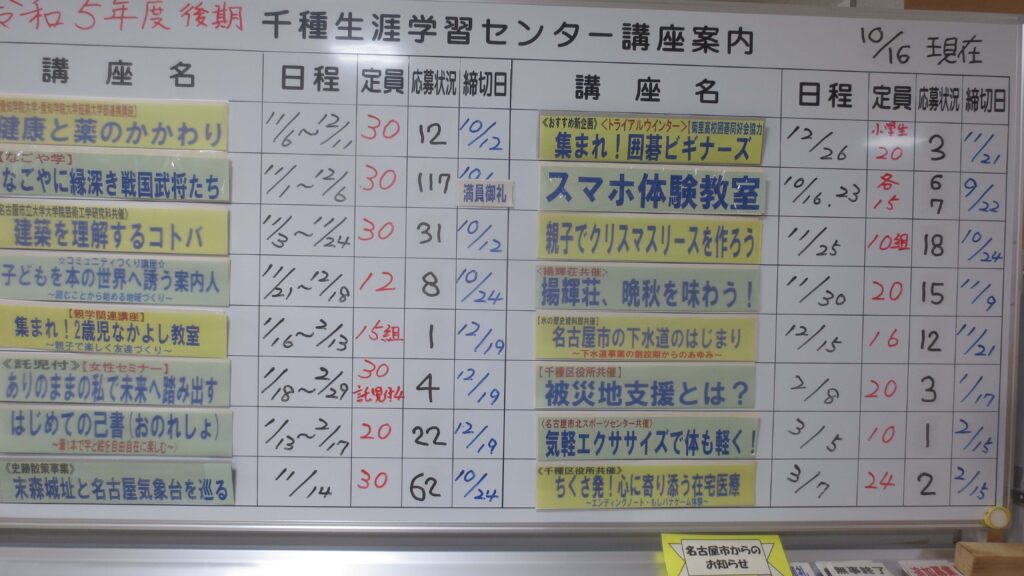 令和5年度後期 千種生涯学習センター講座案内 10/16 現在
講座名 日程 定員 応募状況 締切日
健康と薬のかかわり 11/6〜12/11 30 12 10/12
【なごや学】
なごやに縁深き戦国武将たち 11/1〜12/6 30 117 満員御礼
名古屋市立大学大学院芸術工学研究科共催】
建築を理解するコトバ 11/3〜11/24 30 31 10/12
☆コミュニティづくり講座☆
子どもを本の世界へ誘う案内人 11/21〜12/18 12 8 10/24
〜読むことから始める地域づくり〜
【親学関連講座】
集まれ!2歳児なかよし教室 11/16〜2/13 15組 1 12/19
〜親子で楽しく友達づくり〜
《託児付》【女性セミナー】
ありのままの私で未来へ踏み出す 1/18〜2/29 30 4 12/19
はじめての己書(おのれしょ) 1/13〜2/17 20 22 12/19
〜筆1本で字と絵を自由自在に楽しむ〜
《史跡散策事業》
末森城址と名古屋気象台を巡る 11/14 30 62 10/24
講座名 日程 定員 応募状況 締切日
《おすすめ新企画》〈トライアルウインター〉【菊里高校囲碁同好会協力
集まれ!囲碁ビギナーズ 12/26 小学生 20 3 11/21
スマホ体験教室 10/16.23 各15 6 7 9/22
親子でクリスマスリースを作ろう 11/25 10組 18 10/24
〈揚輝荘共催〉
揚輝荘、晩秋を味わう! 11/30 20 15 11/9
【水の歴史資料館共催】
名古屋市の下水道のはじまり 12/15 16 12 11/21
〜下水道事業の創設期からのあゆみ〜
【千種区役所共催】
被災地支援とは? 2/8 20 3 1/17
〈名古屋市北スポーツセンター共催〉
気軽エクササイズで体も軽く! 3/5 10 1 2/15
〈千種区役所共催〉
ちくさ発!心に寄り添う在宅医療 3/7 24 2 2/15
〜エンディングノート・もしバナゲーム体験〜
名古屋市からの
お知らせ
無事終了
追加募集